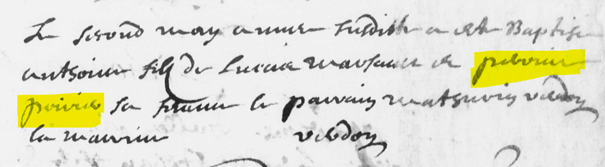 Le second may annee susditte a este Baptise
anthoine fils de Lucie marsaut et peronne
poirier sa femme le parrain mathurin verdon
la marrine verdon